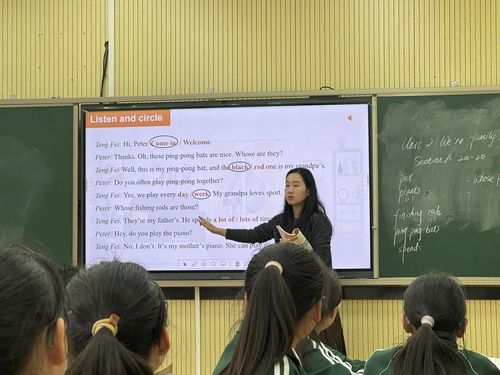 Listen and circle
Teng Fei: Hi, Peter. Come in / Welcome.
Peter: Thanks. Oh, these ping-pong bats are nice. Whose are they?
Teng Fei: Well, this is my ping-pong bat, and the black / red one is my grandpa's.
Peter: Do you often play ping-pong together?
Teng Fei: Yes, we play every day / week. My grandpa loves sport.
Peter: Whose fishing rods are those?
Teng Fei: They're my father's. He spends a lot of / lots of time
Peter: Hey, do you play the piano?
Teng Fei: No, I don't. It's my mother's piano. She can play it
Unit 2 We're family
Section A 2a-2d
put
plants
fishing rods
ping-pong bats
spend